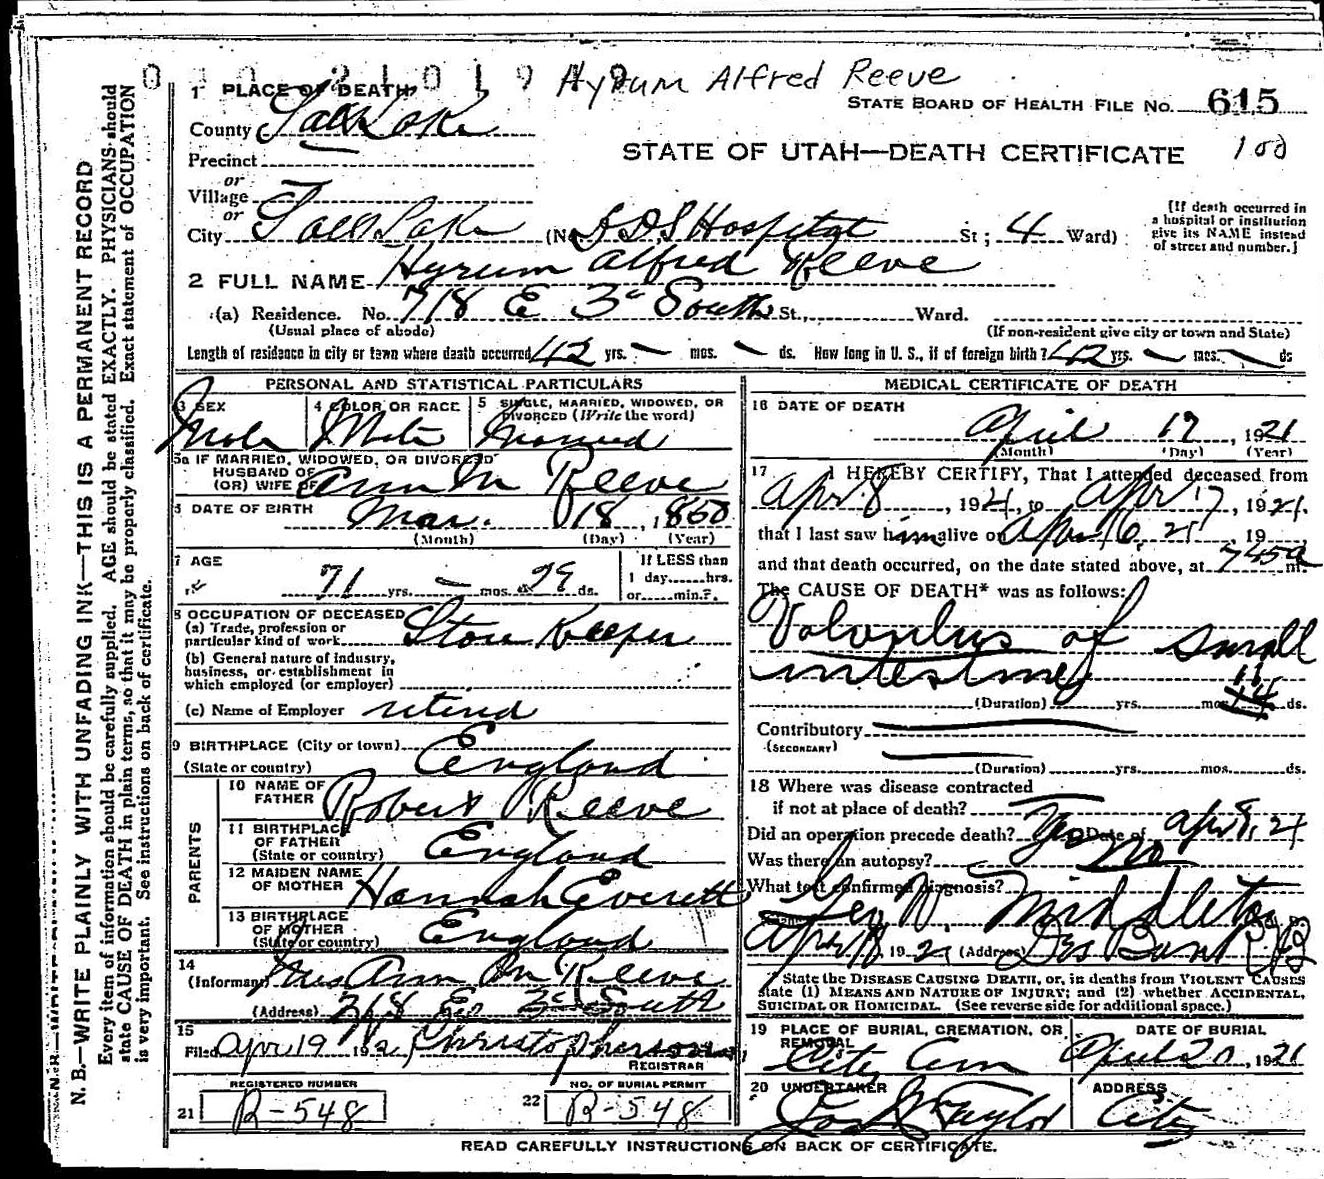 Hyrum Alfred Reeve
1 PLACE OF DEATH
STATE BOARD OF HEALTH FILE NO. 615
County Salt Lake
STATE OF UTAH—DEATH CERTIFICATE 100
Precinct
or
Village
or
City Salt Lake (No. L D S Hospital St; 4 Ward)
[If death occurred in a hospital or institution give its NAME instead of street and number.]
2 FULL NAME Hyrum Alfred Reeve
(a) Residence. No. 718 E 3d South St., Ward.
(Usual place of abode) (If non-resident give city or town and State)
Length of residence in city or town where death occurred 42 yrs. — mos. — ds. How long in U. S., if of foreign birth? 42 yrs. — mos. — ds
PERSONAL AND STATISTICAL PARTICULARS
3 SEX Male
4 COLOR OR RACE White
5 SINGLE, MARRIED, WIDOWED, OR DIVORCED (Write the word) Married
5a IF MARRIED, WIDOWED, OR DIVORCED
HUSBAND OF
(OR) WIFE OF Ann M Reeve
6 DATE OF BIRTH Mar. 18, 1850
(Month) (Day) (Year)
7 AGE 71 yrs. — mos. 29 ds.
If LESS than
1 day......hrs.
or......min.?
8 OCCUPATION OF DECEASED
(a) Trade, profession or particular kind of work Store Keeper
(b) General nature of industry, business, or establishment in which employed (or employer)
(c) Name of Employer retired
9 BIRTHPLACE (City or town)
(State or country) England
PARENTS
10 NAME OF FATHER Robert Reeve
11 BIRTHPLACE OF FATHER (State or country) England
12 MAIDEN NAME OF MOTHER Hannah Everett
13 BIRTHPLACE OF MOTHER (State or country) England
14
(Informant) Mrs Ann M Reeve
(Address) 718 E 3d South
15
Filed Apr 19 192 Christopherson
REGISTRAR
REGISTERED NUMBER
21 R-548
NO. OF BURIAL PERMIT
22 R-548
MEDICAL CERTIFICATE OF DEATH
16 DATE OF DEATH
April 17, 1921
(Month) (Day) (Year)
17 I HEREBY CERTIFY, That I attended deceased from
Apr 8, 1921, to Apr 17, 1921.
that I last saw him alive on Apr 16, 21, 19
and that death occurred, on the date stated above, at 745a m.
The CAUSE OF DEATH* was as follows:
Volvulus of small
intestine
(Duration) yrs. mos. 11 ds.
Contributory
(SECONDARY)
(Duration) yrs. mos. ds.
18 Where was disease contracted
if not at place of death?
Did an operation precede death? Yes Date of Apr 8, 21
Was there an autopsy? No
What test confirmed diagnosis?
Geo W. Middleton
Apr 18 1921 (Address) Des Bank Bldg
*State the DISEASE CAUSING DEATH, or, in deaths from VIOLENT CAUSES
state (1) MEANS AND NATURE OF INJURY; and (2) whether ACCIDENTAL,
SUICIDAL OR HOMICIDAL. (See reverse side for additional space.)
19 PLACE OF BURIAL, CREMATION, OR REMOVAL
City Cem
DATE OF BURIAL
April 20, 1921
20 UNDERTAKER
Jos Wm Taylor
ADDRESS
City
READ CAREFULLY INSTRUCTIONS ON BACK OF CERTIFICATE.
N. B.—WRITE PLAINLY WITH UNFADING INK—THIS IS A PERMANENT RECORD
Every item of information should be carefully supplied. AGE should be stated EXACTLY. PHYSICIANS should
state CAUSE OF DEATH in plain terms, so that it may be properly classified. Exact statement of OCCUPATION
is very important. See instructions on back of certificate.